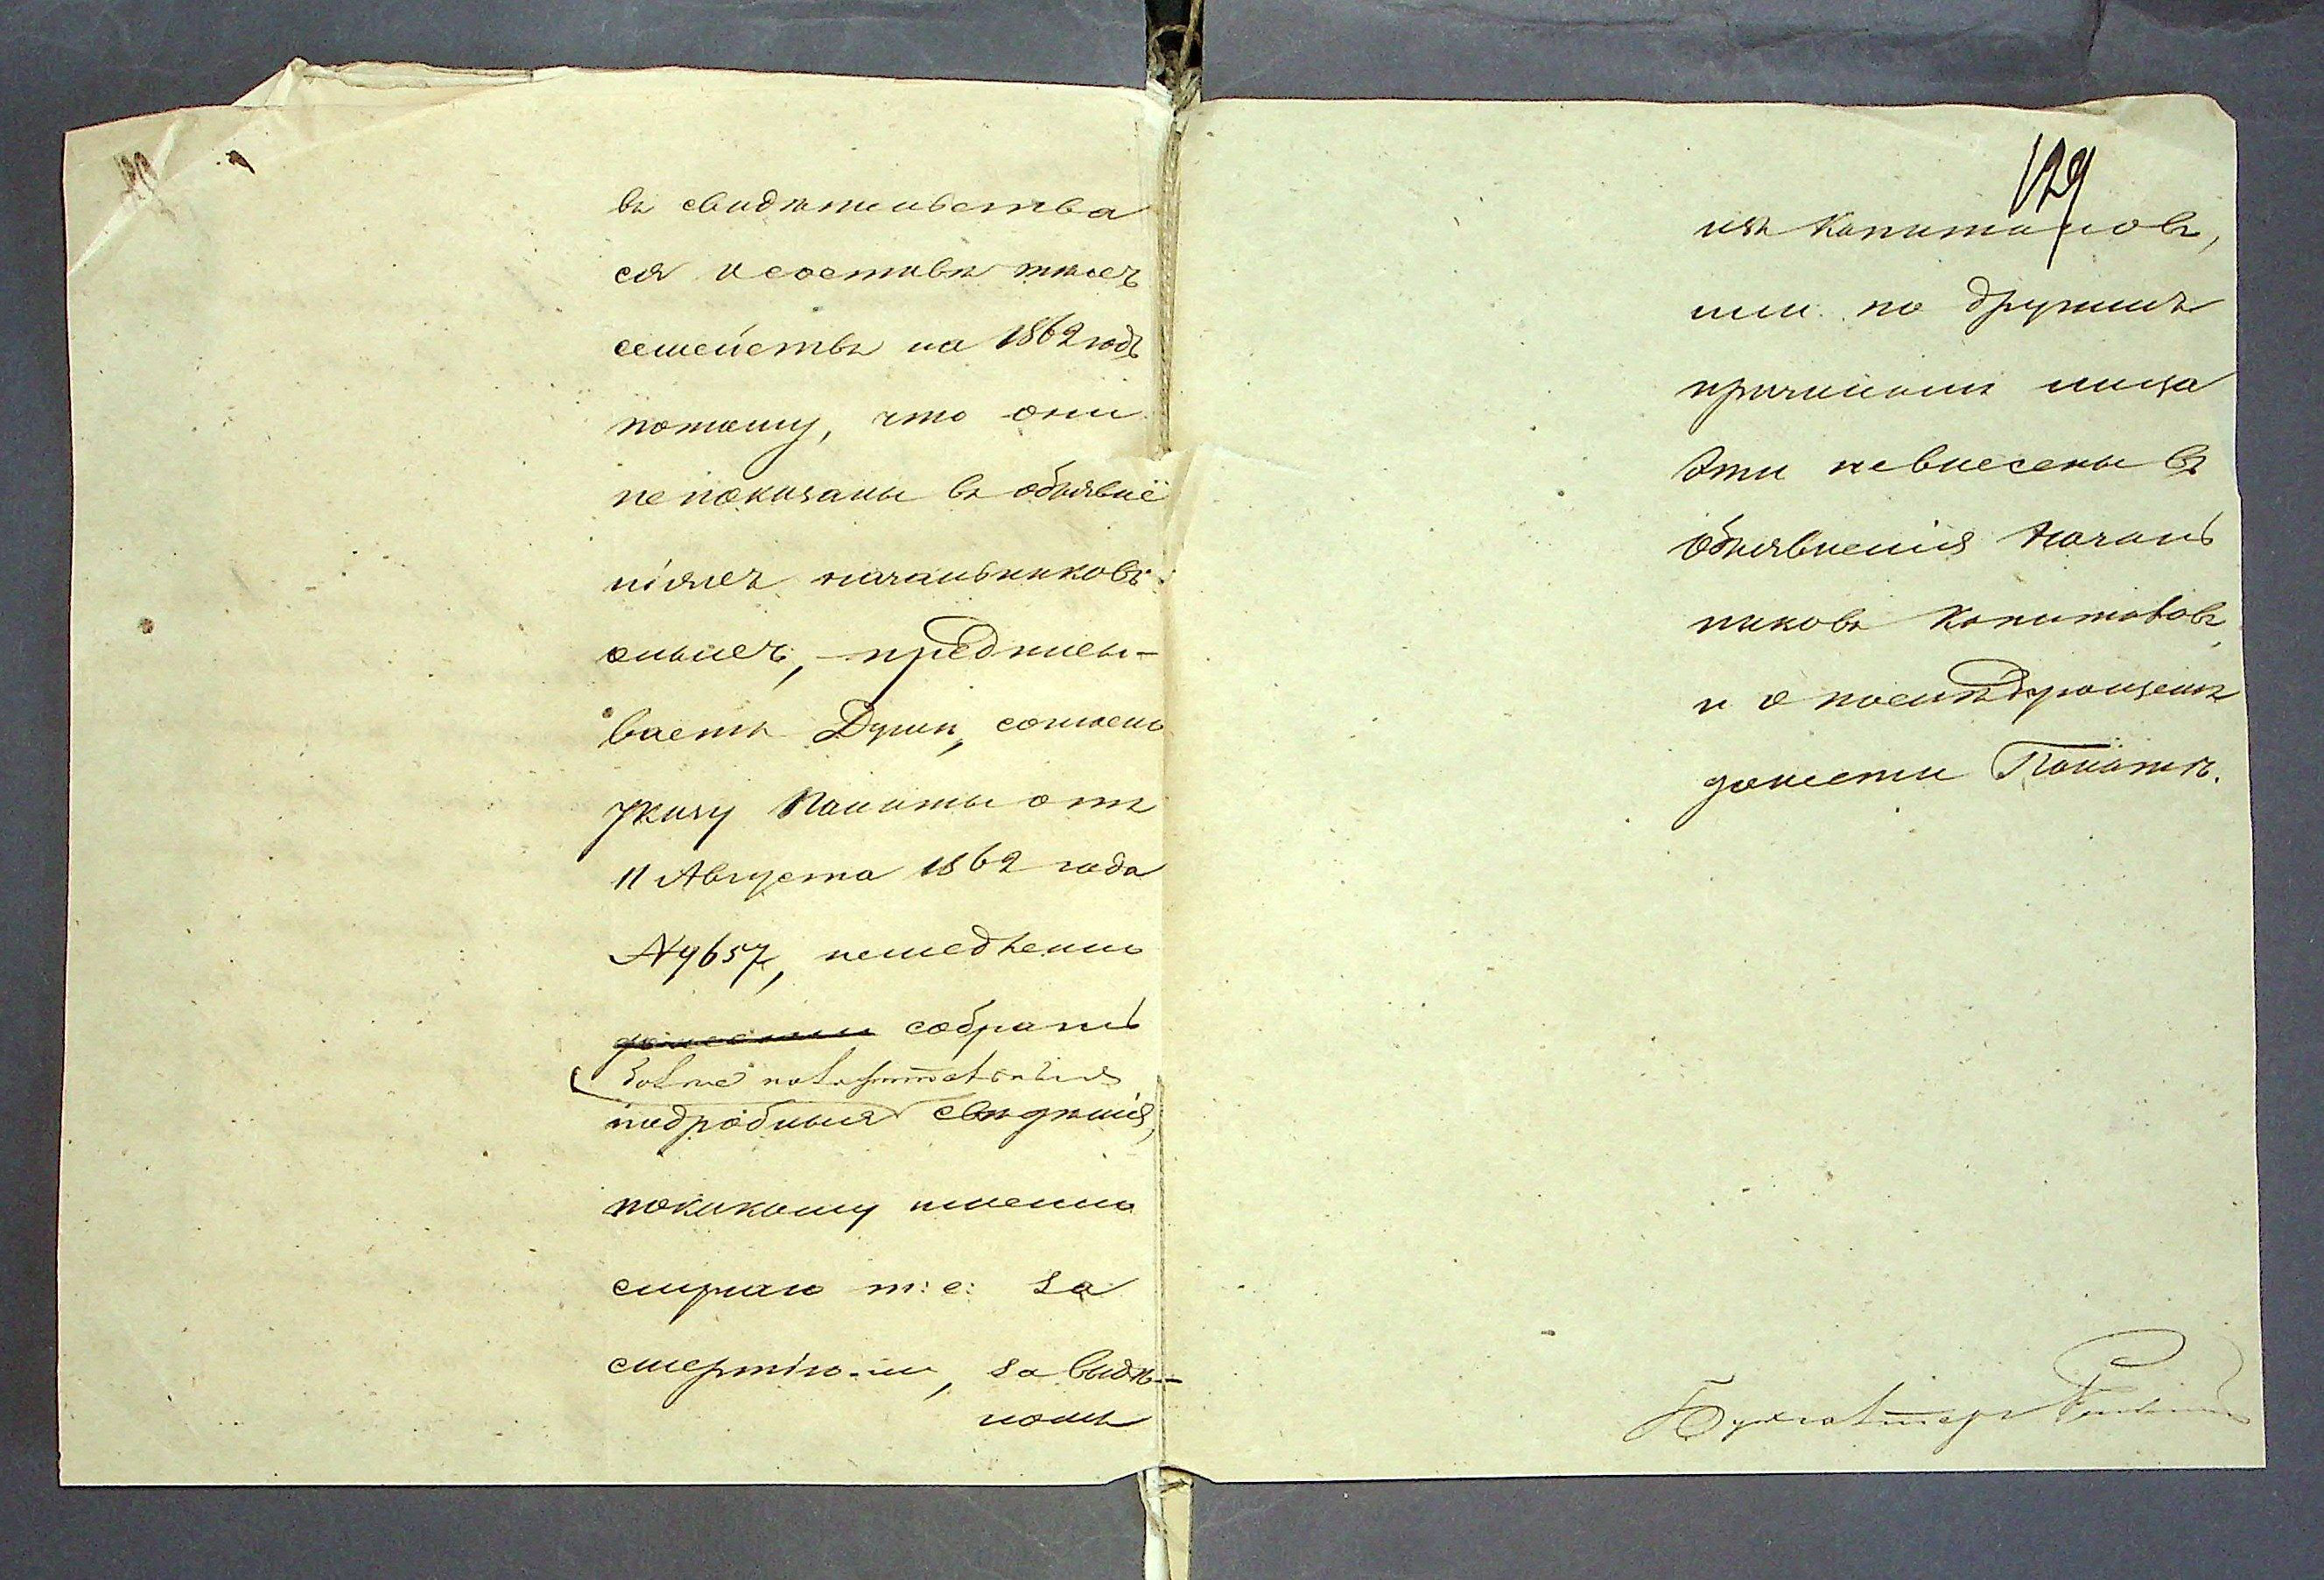 въ свидѣтельства
ся о составѣ тѣхъ
семействъ на 1862 годъ
потому, что они
непоказаны въ объявле
ніяхъ начальниковъ
оныхъ, – предписы-
ваетъ Думѣ, согласно
указу Палаты отъ
11 Августа 1862 года
№ 9657, немедленно
донести собрать
болѣе положительныя
подробныя свѣдѣнія,
покакому именно
случаю т: е: за
смертію-ли, за выдѣ-
ломъ
129
изъ Капиталовъ,
или по другимъ
причинамъ лица
эти невнесены въ
объявленія Началь
никовъ Капиталовъ,
и о послѣдующемъ
донести Палатѣ.
Бухгалтеръ